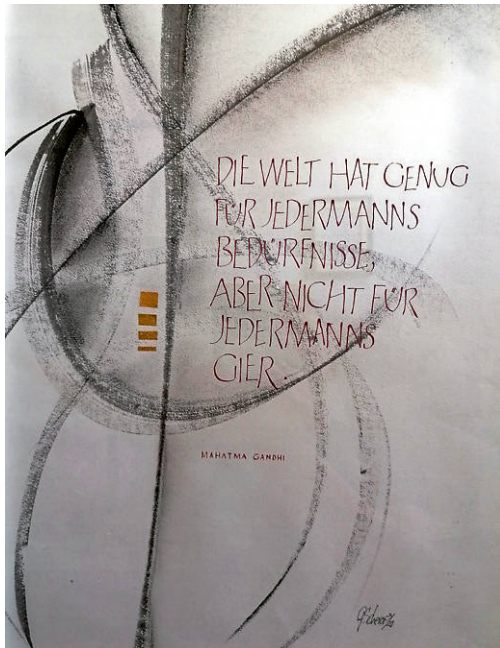 DIE WELT HAT GENUG
FÜR JEDERMANNS
BEDÜRFNISSE,
ABER NICHT FÜR
JEDERMANNS
GIER.
MAHATMA GANDHI